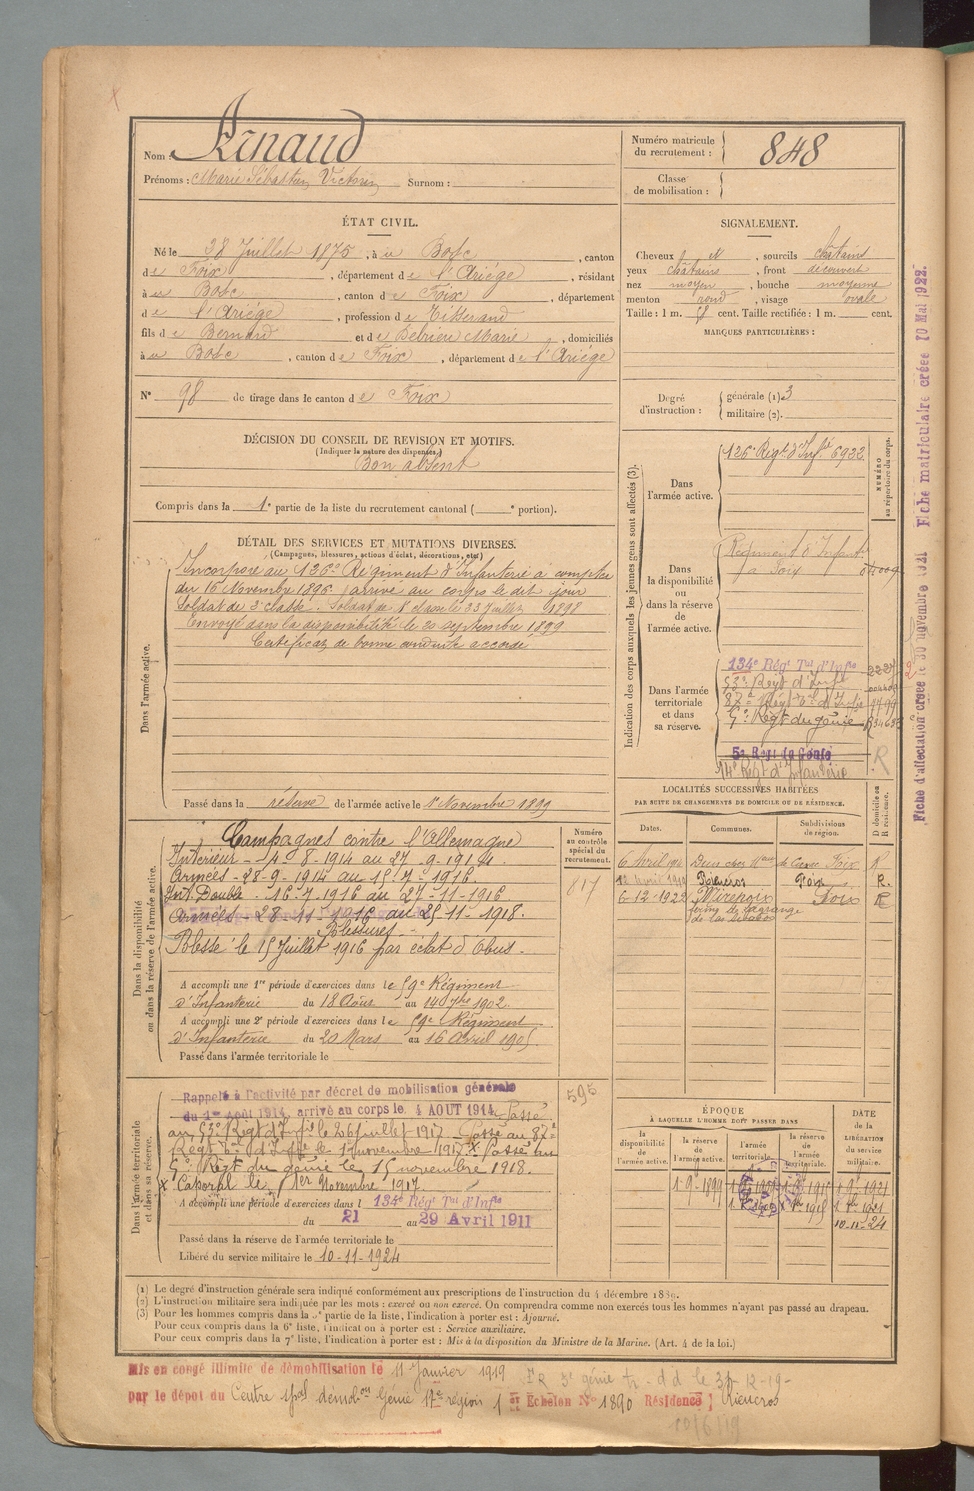 Nom : Arnaud
Prénoms : Marie Sébastien Victorin Surnom :
Numéro matricule du recrutement : 848
Classe de mobilisation :
ÉTAT CIVIL.
Né le 28 Juillet 1875, à u Bosc, canton
de Foix, département de l'Ariège, résidant
à u Bosc, canton de Foix, département
de l'Ariège, profession de Tisserand
fils de Bernard et de Marie, domiciliés
à u Bosc, canton de Foix, département de l'Ariège
N° 98 de tirage dans le canton de Foix
SIGNALEMENT.
Cheveux et, sourcils châtains
yeux châtains, front découvert
nez moyen, bouche moyenne
menton rond, visage ovale
Taille : 1 m. 58 cent. Taille rectifiée : 1 m. cent.
MARQUES PARTICULIÈRES :
Degré d'instruction : générale (1) 3
militaire (2).
DÉCISION DU CONSEIL DE REVISION ET MOTIFS.
(Indiquer la nature des dispenses.)
Bon absent
Compris dans la 1e partie de la liste du recrutement cantonal ( e portion).
DÉTAIL DES SERVICES ET MUTATIONS DIVERSES.
(Campagnes, blessures, actions d'éclat, décorations, etc.)
Dans l'armée active.
Incorporé au 126e Régiment d'Infanterie à compter
du 16 Novembre 1896, arrivé au corps le dit jour
Soldat de 2e classe. Soldat de 1e classe le 23 Juillet 1898
Envoyé dans la disponibilité le 20 septembre 1899
Certificat de bonne conduite accordé
Passé dans la réserve de l'armée active le 1er Novembre 1899
Indication des corps auxquels les jeunes gens sont affectés (3).
Dans l'armée active.
126e Régt d'Infie 6922
NUMÉRO au répertoire du corps.
Dans la disponibilité ou dans la réserve de l'armée active.
Régiment d'Infant.
à Foix
Dans l'armée territoriale et dans sa réserve.
134e Régt Tal d'Infie 2227
53e Régt d'Infie
87e Régt Tal d'Infie
5e Régt du génie
5e Régt du Génie
14e Régt d'Infanterie
R
Fiche d'affectation créée le 30 novembre 1921 Fiche matriculaire créée 10 Mai 1922.
Dans la disponibilité ou dans la réserve de l'armée active.
Campagnes contre l'Allemagne
Intérieur - 4-8-1914 au 27-9-1914.
Armées - 28-9-1914 au 15-7-1916
Int. Double - 16-7-1916 au 27-11-1916
Armées - 28-11-1916 au 25-11-1918.
Blessures
Blessé le 15 Juillet 1916 par éclat d'obus.
A accompli une 1re période d'exercices dans le 59e Régiment
d'Infanterie du 18 Août au 14 7bre 1902.
A accompli une 2e période d'exercices dans le 59e Régiment
d'Infanterie du 20 Mars au 16 Avril 1905.
Passé dans l'armée territoriale le
Numéro au contrôle spécial du recrutement.
817
595
LOCALITÉS SUCCESSIVES HABITÉES
PAR SUITE DE CHANGEMENTS DE DOMICILE OU DE RÉSIDENCE.
Dates. Communes. Subdivisions de région. D domicile ou R résidence.
6 Avril Dun chez Foix R
12 Avril Rieucros Foix R.
6-12-1922 Mirepoix Foix R
ferme de Lagrange
Dans l'armée territoriale et dans sa réserve.
Rappelé à l'activité par décret de mobilisation générale
du 1er août 1914, arrivé au corps le 4 AOUT 1914. Passé
au 53e Régt d'Infie le 26 juillet 1917. Passé au 87e
Régt Tal d'Infie le 1 novembre 1917. X Passé au
5e Régt du génie le 15 novembre 1918.
X Caporal le 1er Novembre 1917.
A accompli une période d'exercices dans l 134e Régt Tal d'Infie
du 21 au 29 Avril 1911
Passé dans la réserve de l'armée territoriale le
Libéré du service militaire le 10-11-1924
ÉPOQUE
À LAQUELLE L'HOMME DOIT PASSER DANS
la disponibilité de l'armée active. la réserve de l'armée active. l'armée territoriale. la réserve de l'armée territoriale.
DATE de la LIBÉRATION du service militaire.
1-9-1899 1-9-1915 1-9-1921
10-11-24
(1) Le degré d'instruction générale sera indiqué conformément aux prescriptions de l'instruction du 4 décembre 1889.
(2) L'instruction militaire sera indiquée par les mots : exercé ou non exercé. On comprendra comme non exercés tous les hommes n'ayant pas passé au drapeau.
(3) Pour les hommes compris dans la 5e partie de la liste, l'indication à porter est : Ajourné.
Pour ceux compris dans la 6e liste, l'indication à porter est : Service auxiliaire.
Pour ceux compris dans la 7e liste, l'indication à porter est : Mis à la disposition du Ministre de la Marine. (Art. 4 de la loi.)
Mis en congé illimité de démobilisation le 11 Janvier 1919
par le dépôt du Centre démobon Génie 17e région 1 er Échelon N° 1890 Résidence ) Rieucros